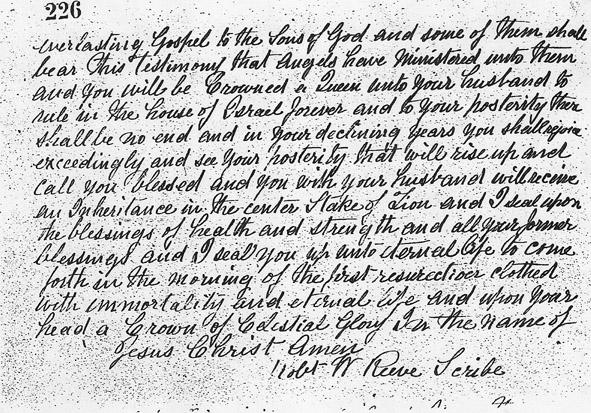 226
everlasting Gospel to the Sons of God and some of them shall
bear this testimony that Angels have Ministered unto them
and you will be Crowned a Queen unto your husband to
rule in the house of Israel forever and to your posterity there
shall be no end and in your declining years you shall rejoice
exceedingly and see your posterity that will rise up and
call you blessed and you with your husband will receive
an Inheritance in the center Stake of Zion and I seal upon
the blessings of health and strength and all your former
blessings and I seal you up unto eternal life to come
forth in the morning of the first resurrection clothed
with immortality and eternal life and upon your
head a Crown of Celestial Glory In the name of
Jesus Christ Amen
Robt W Reeve Scribe